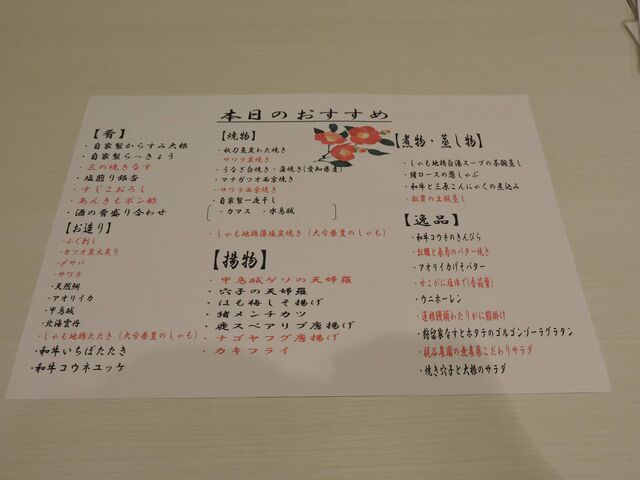 本日のおすすめ
【肴】
・自家製からすみ大根
・自家製らっきょう
・三の焼きなす
・塩煎り銀杏
・すじこおろし
・あんきもポン酢
・酒の肴盛り合わせ
【お造り】
・ふぐ刺し
・カツオ藁火炙り
・〆サバ
・サワラ
・天然鯛
・アオリイカ
・甲烏賊
・北海雲丹
・しゃも地鶏たたき(大分県豊のしゃも)
・和牛いちばたたき
・和牛コウネユッケ
【焼物】
・秋刀魚炭わた焼き
・サワラ炭焼き
・うなぎ白焼き・蒲焼き(愛知県産)
・マナガツオ西京焼き
・サワラ西京焼き
・自家製一夜干し
・カマス ・水烏賊
・しゃも地鶏藻塩炭焼き(大分県豊のしゃも)
【揚物】
・甲烏賊ゲソの天婦羅
・穴子の天婦羅
・はも梅しそ揚げ
・猪メンチカツ
・鹿スペアリブ唐揚げ
・ナゴヤフグ唐揚げ
・カキフライ
【煮物・蒸し物】
・しゃも地鶏白湯スープの茶碗蒸し
・猪ロースの葱しゃぶ
・和牛と三原こんにゃくの煮込み
・松茸の土瓶蒸し
【逸品】
・和牛コウネのきんぴら
・牡蠣と春菊のバター焼き
・アオリイカげそバター
・せこがに塩ゆで(香箱蟹)
・ウニホーレン
・蓮根饅頭わたりがに餡掛け
・なすとホタテのゴルゴンゾーラグラタン
・梶谷農園の無農薬こだわりサラダ
・焼き穴子と大根のサラダ